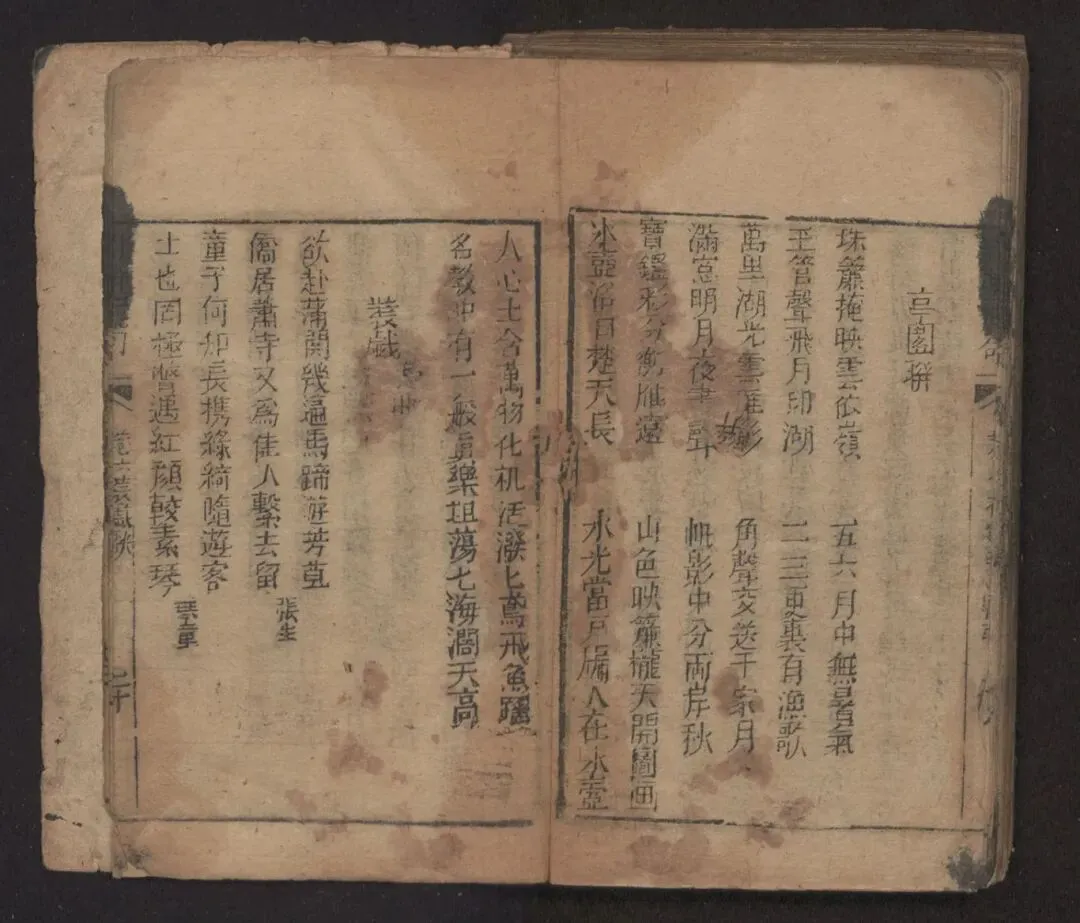 亭園聨
珠簾掩映雲依嶺 五六月中無暑氣
玉管聲飛月印湖 二三更裏有漁歌
萬里湖光雲雁影 角聲交送千家月
滿窓明月夜 聲 帆影中分兩岸秋
寶鑑彩分 雁遠 山色映簾櫳天開圖画
氷壺 日楚天長 水光當戶牖人在氷壺
人心土含萬物化机活潑匕鳶飛魚躍
名教中有一般真樂坦蕩匕海濶天高
裝戲
欲赴蒲関幾遍馬蹄遊芳草
僑居蕭寺又為佳人繫去留 張生
童子何知長携綠綺隨遊客
土也罔極暫遇紅顔較素琴 琴童